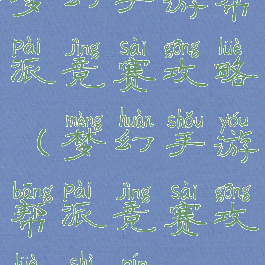 梦幻手游帮
pài jìng sài gōng lüè
派竞赛攻略
mèng huàn shǒu yóu
(梦幻手游
bāng pài jìng sài gōng
帮派竞赛攻
lüè shì pín